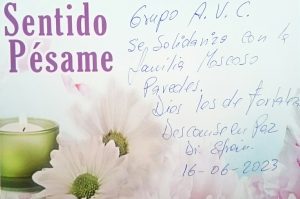 Sentido
Pésame
Grupo A. V. C.
Se Solidariza con la
familia Moscoso
Paredes.
Dios les de fortaleza
Descanse en Paz
Dr. Efraín.
16-06-2023